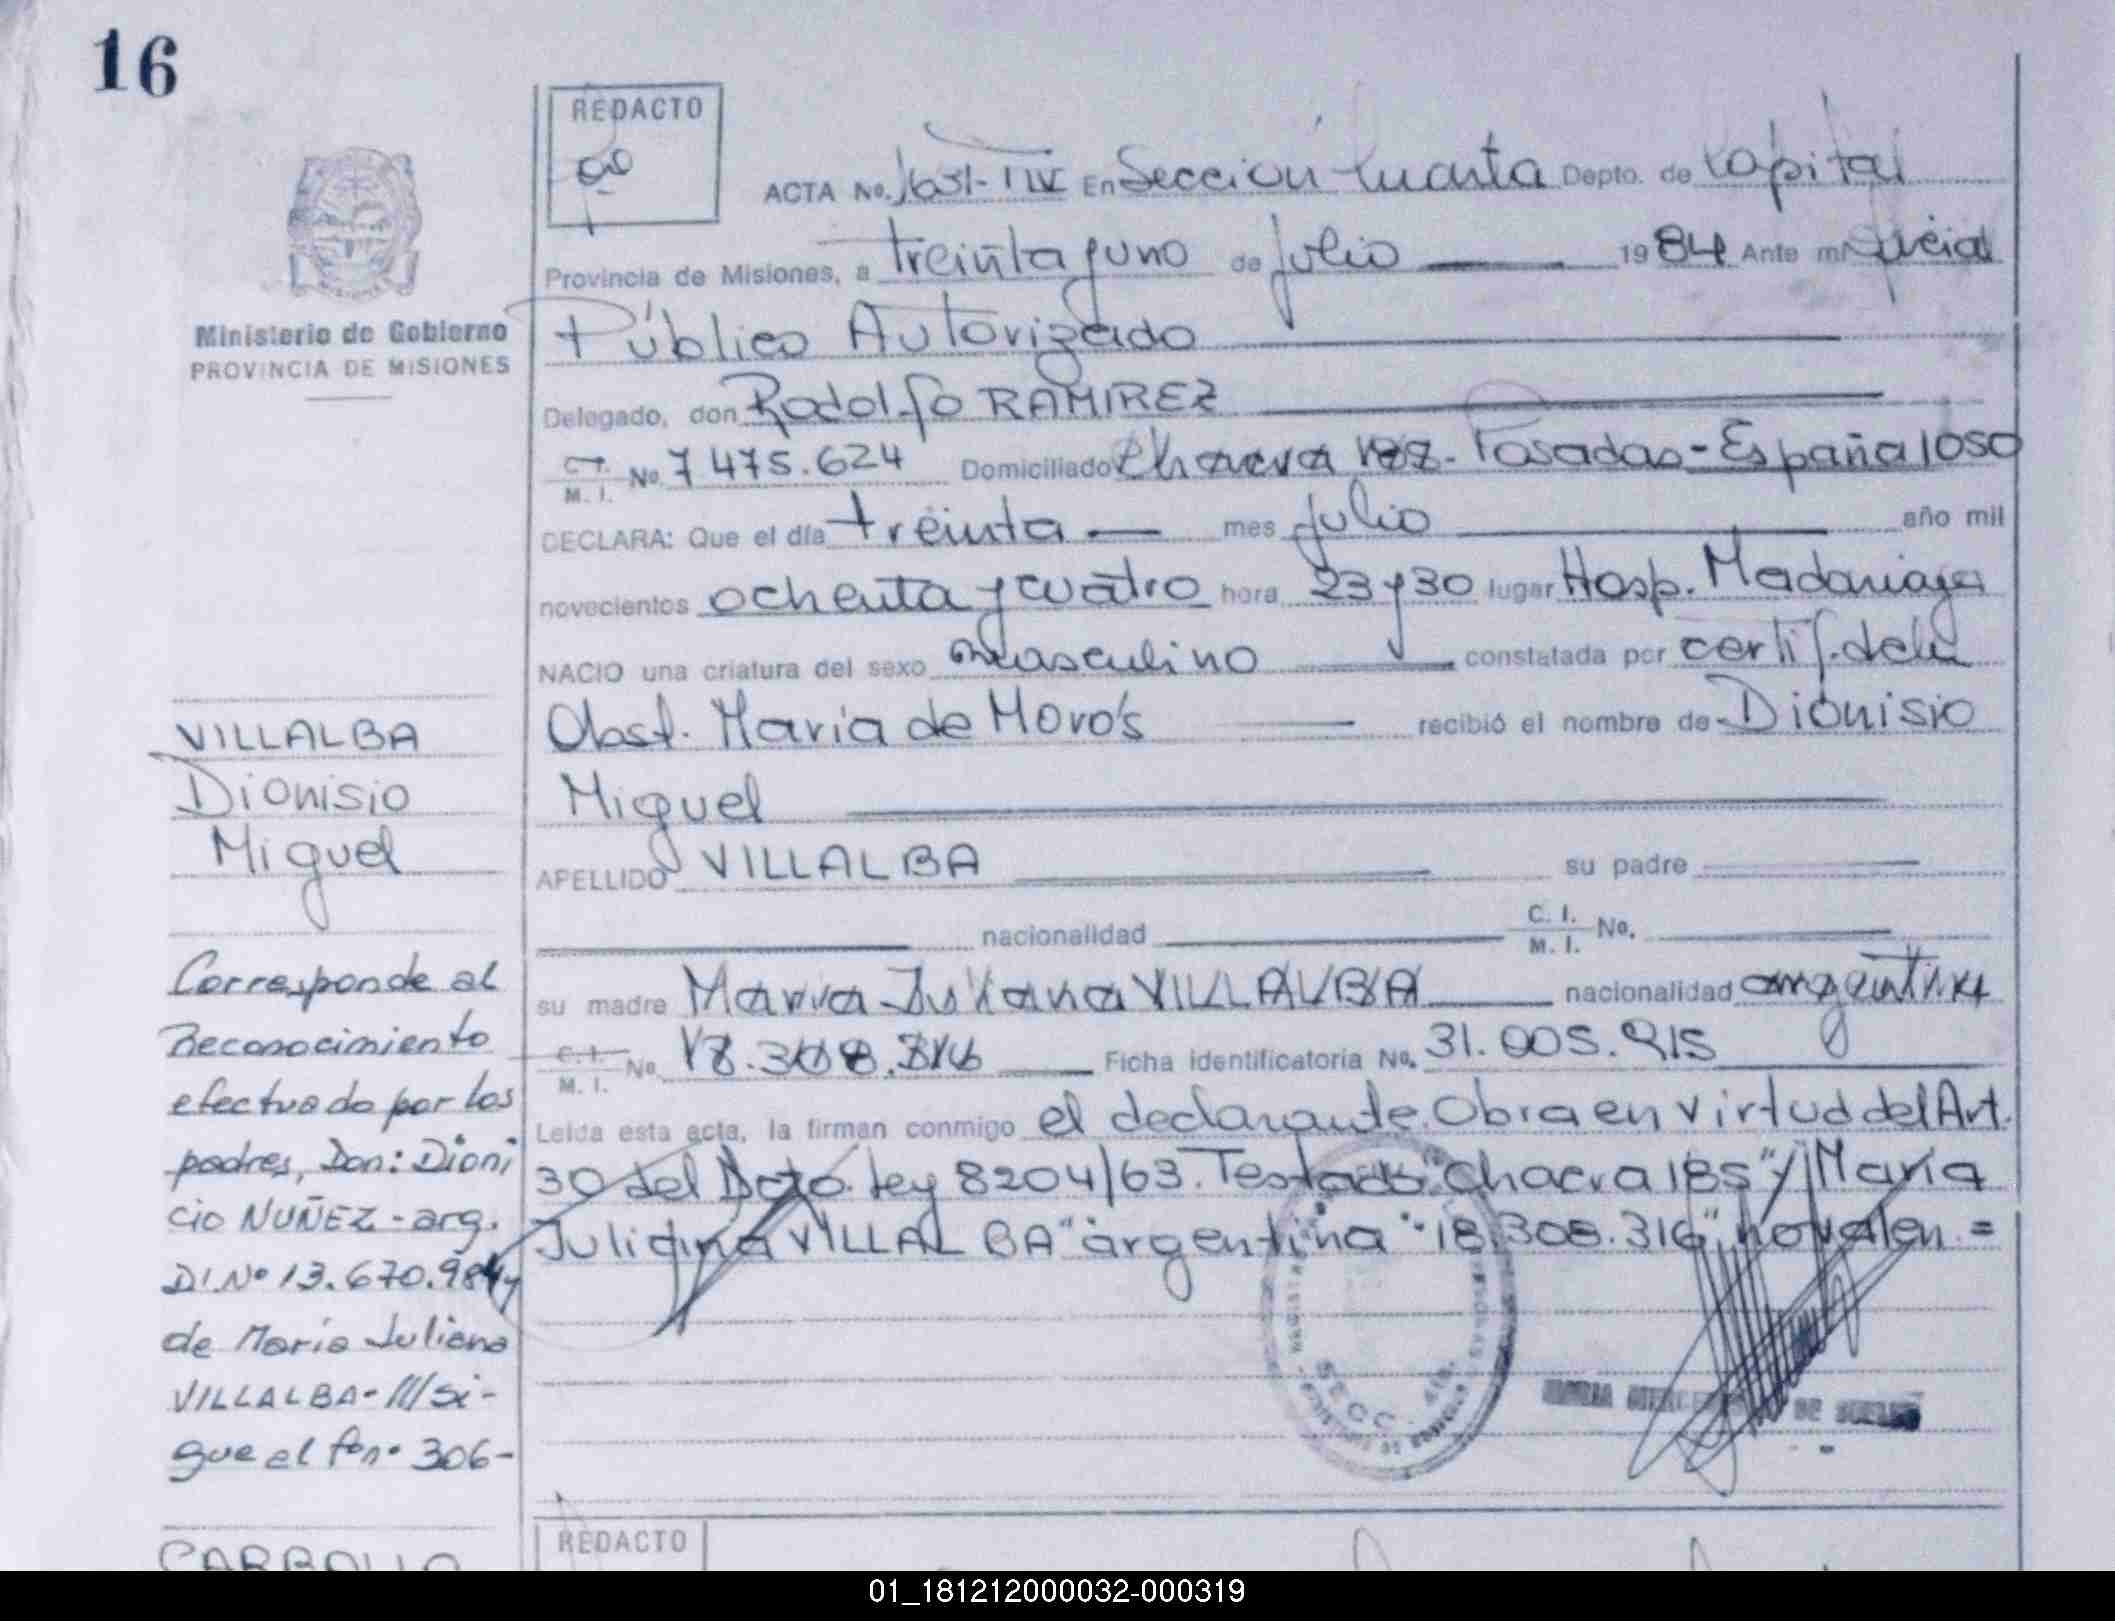 16
REDACTO
ACTA No. 1631-T IV En Sección Cuarta Depto. de Capital
Provincia de Misiones, a treinta y uno de julio 1984 Ante mí Oficial
Público Autorizado
Delegado, don Rodolfo RAMIREZ
C. I.
M. I. No. 7475.624 Domiciliado Chacra 185 - Posadas - España 1050
DECLARA: Que el día treinta mes julio año mil
novecientos ochenta y cuatro hora 23 y 30 lugar Hosp. Madariaga
NACIO una criatura del sexo masculino constatada por certif. de la
Obst. María de Moro's recibió el nombre de Dionisio
Miguel
APELLIDO VILLALBA su padre
nacionalidad C. I. M. I. No.
su madre María Juliana VILLALBA nacionalidad argentina
C. I. M. I. No. 18.308.316 Ficha identificatoria No. 31.005.915
Leida esta acta, la firman conmigo el declarante. Obra en virtud del Art.
30 del Dcto. Ley 8204/63. Testado: "Chacra 185" y "María
Juliana VILLALBA" "argentina" "18.308.316", no valen =
SECC. 4ta.
Ministerio de Gobierno
PROVINCIA DE MISIONES
VILLALBA
Dionisio
Miguel
Corresponde al
Reconocimiento
efectuado por los
padres, Don: Dioni
cio NUÑEZ - arg.
DI. Nº 13.670.984 y
de María Juliana
VILLALBA - /// Si-
gue el fº nº 306 -
REDACTO
01_181212000032-000319